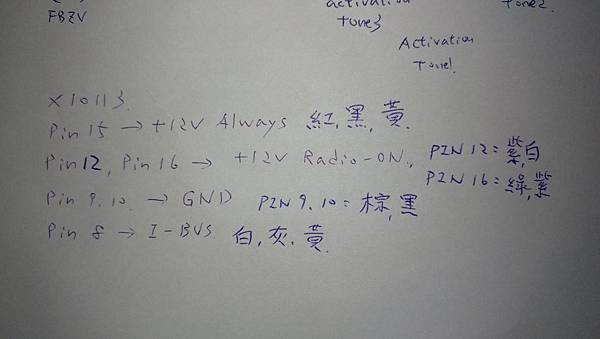 activation
Tone2.
FBZV
Tone3
Activation
Tone1.
X10113.
Pin 15 → +12V Always 紅,黑,黃.
Pin12, Pin 16 → +12V Radio-ON., PIN 12:紫,白
PIN 16:綠,紫
Pin 9.10. → GND PIN 9.10:棕,黑
Pin 8 → I-BUS. 白,灰,黃.